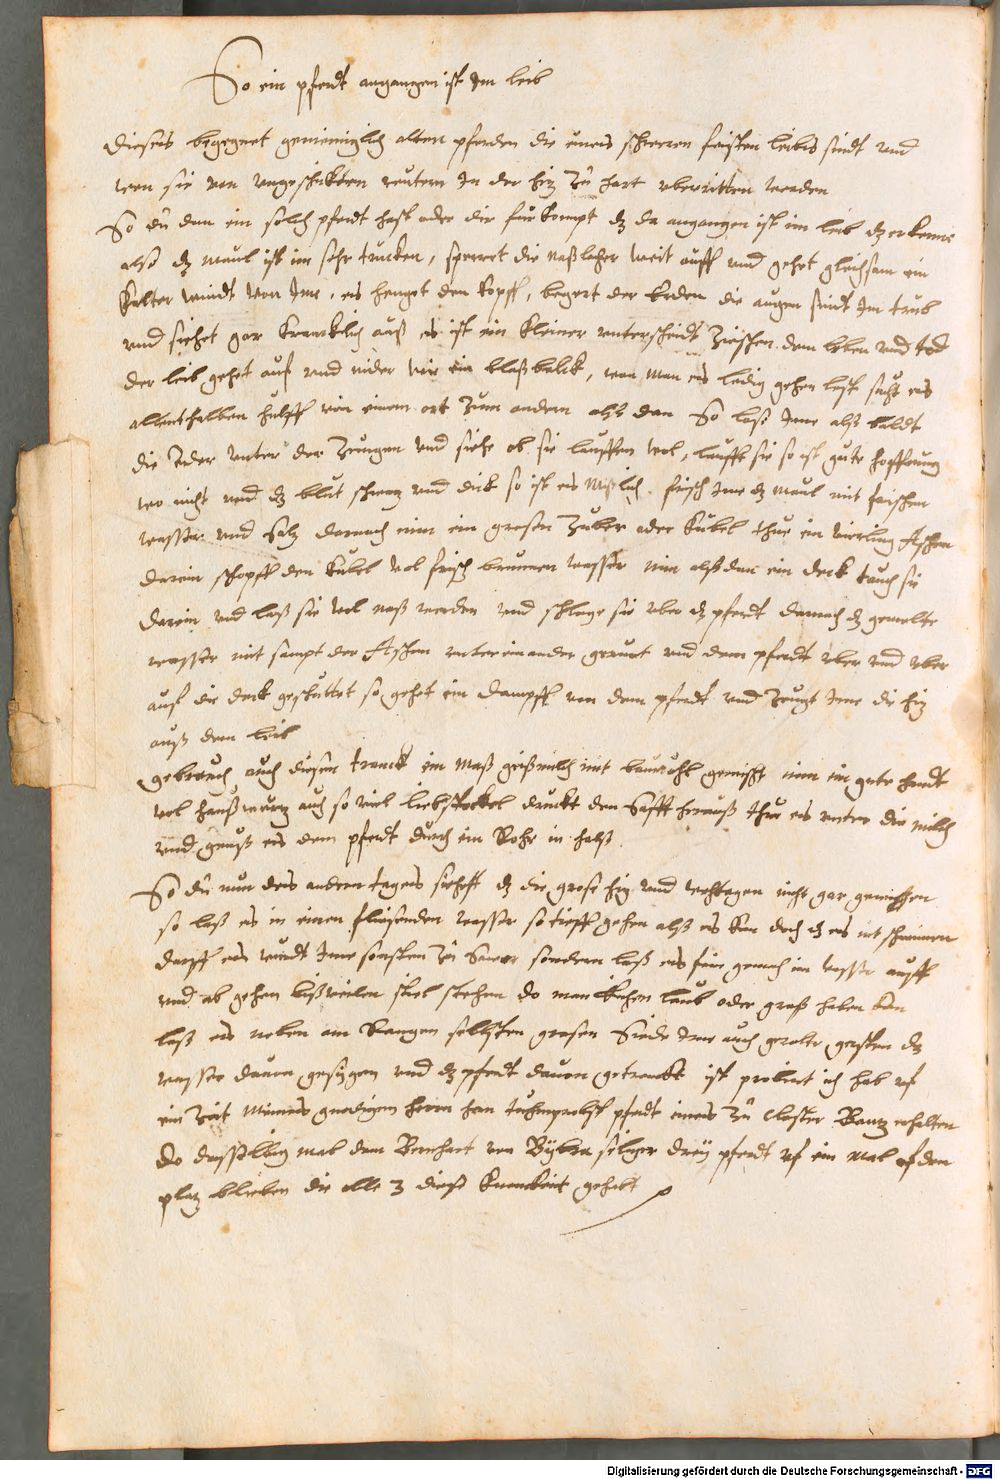 So ein pferdt angangen ist Im leib
dieses begegnet gemeiniglich alten pferden die eines schweren feisten leibs sindt und
wen sie von ungeschickten reutern In der hiz zu hart uberritten werden
So du dan ein solch pferdt hast oder dir furkompt dz da angangen ist im leib dz erkenne
also dz maul ist im sehr trucken, sperret die naßlocher weit auff und gehet gleichsam ein
kalter windt von Ime, es henget den kopff, begert der erden die augen sindt Im trub
und siehet gar krancklich auß es ist ein kleiner unterscheidt zwischen dem leben und todt
der leib gehet auf und nider wie ein blaßbalck, wen man es ledig gehen lest sucht es
allenthalben hulff von einem ort zum andern alß dan So laß Ime alß baldt
die Ader unter der Zungen und siehe ob sie lauffen wol, laufft sie so ist gute hoffnung
wo nicht und dz blut schwarz und dick so ist es mißlich. frisch Ime dz maul mit frischem
wasser und salz darnach nim ein grosen Zuber oder kubel thue ein vierling Aschen
darein schopff den kubel vol frisch brunnen wasser nim alßdan ein deck tauch sie
darein und laß sie wol naß werden und schlage sie uber dz pferdt darnach dz gemelte
wasser mit sampt der Aschen untereinander gerurt und dem pferdt uber und uber
auf die deck geschuttet so gehet ein dampff von dem pferdt und zeugt Ime die hiz
auß dem leib
gebrauch auch diesen tranck ein maß geißmilch mit baumohl gemischt nim ein gute handt
vol haußwurz auch so viel liebstockel druckt den Safft herauß thue es unter die milch
und geuß es dem pferdt durch ein Rohr in halß.
So du nun des andern tages siehest dz die grose hiz und wehtagen nicht gar gewichen
so laß es in einen fliesenden wasser so tieff gehen alß es kan doch dz es nit schwimmen
darff es wurdt Ime sonsten zu sawer sondern laß es fein gemach im wasser auff
und ab gehen bißweilen stiel stehen do man Eichen laub oder graß haben kan
laß es neben am Rangen selbsten grasen Siede Ime auch gerolte gersten dz
wasser davon gesigen und dz pferdt davon getrenckt ist probirt ich hab uf
ein Zeit Meines gnedigen herrn hern thumprobst pferdt eines zu Closter Banz erhalten
do dasselbig mal dem Bernhart von Bybra seliger drey pferdt uf ein mal uf dem
plaz blieben die alle 3 diese kranckeit gehabt
Digitalisierung gefördert durch die Deutsche Forschungsgemeinschaft - DFG